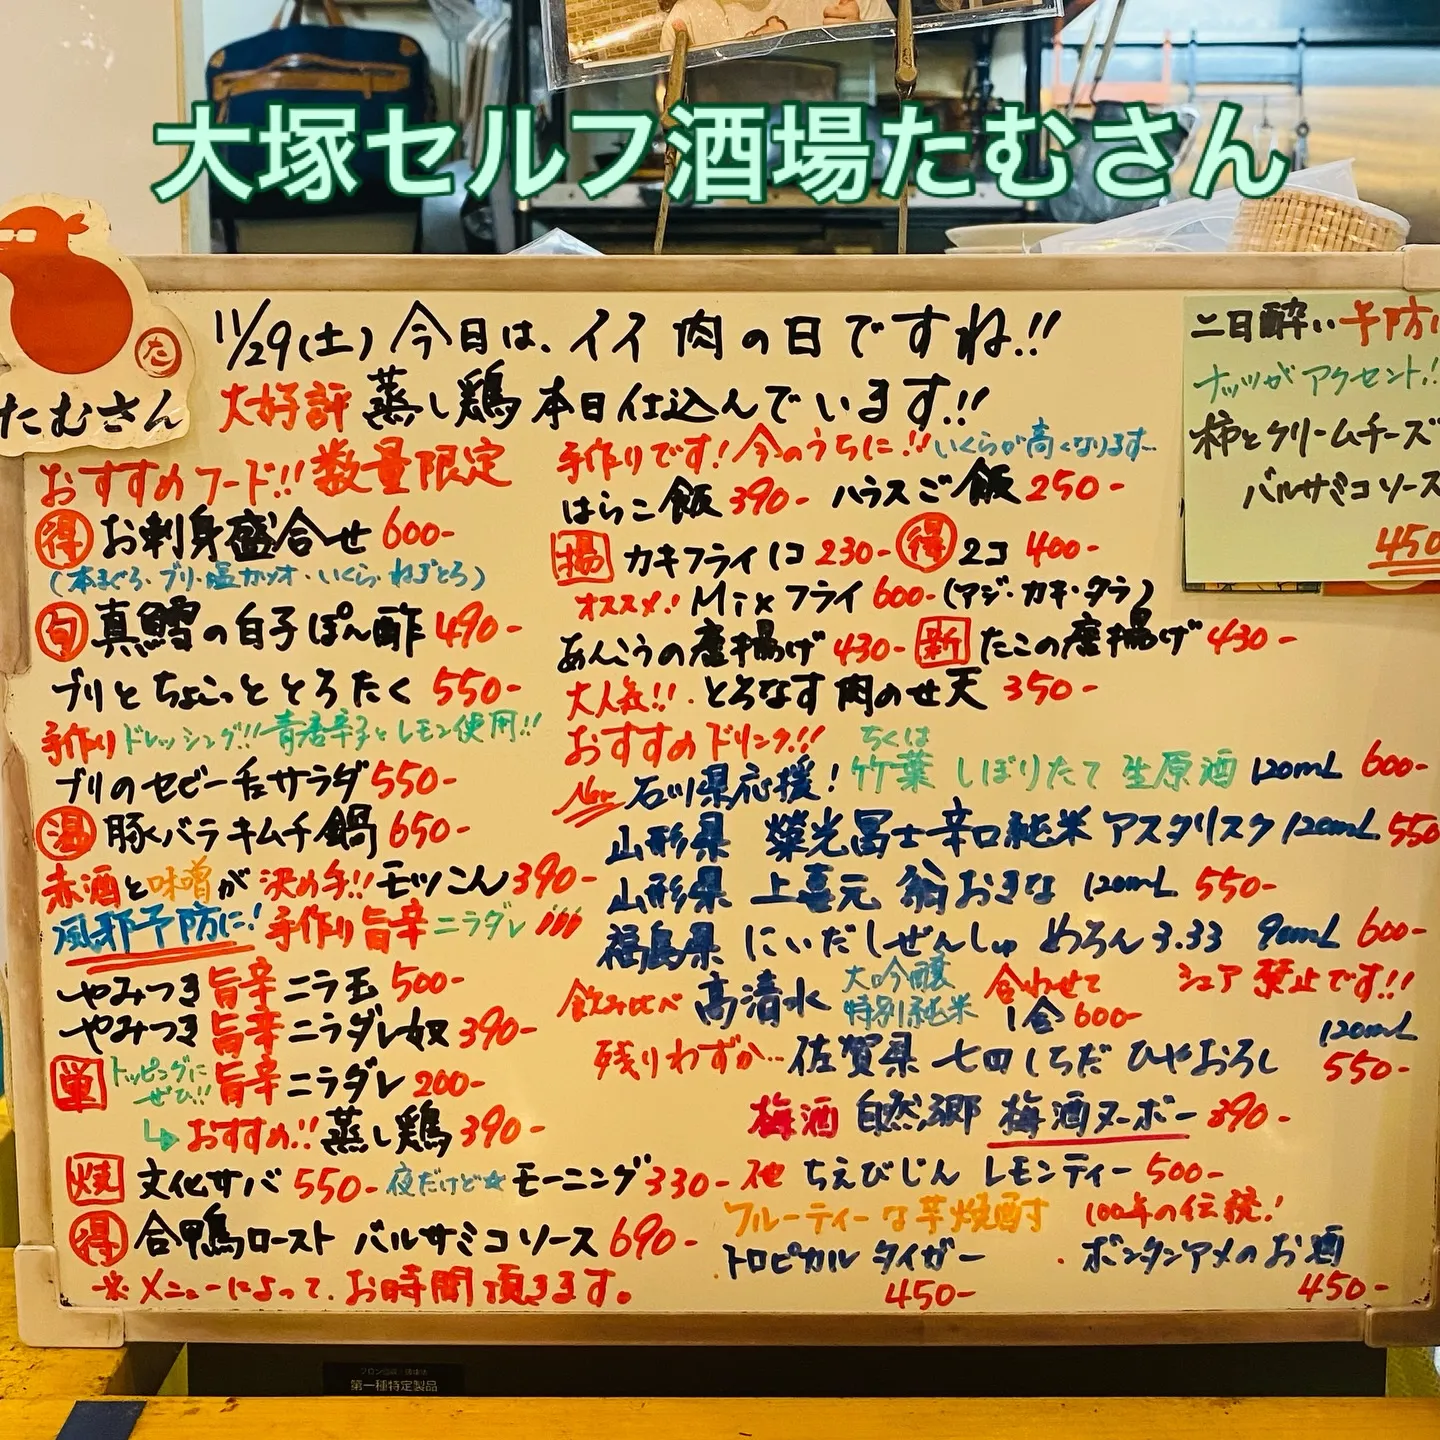 大塚セルフ酒場たむさん
た
たむさん
11/29(土)今日は、イイ肉の日ですね!!
大好評 蒸し鶏 本日仕込んでいます!!
おすすめフード!! 数量限定
得 お刺身盛合せ 600-
(本まぐろ・ブリ・塩カツオ・いくら・ねぎとろ)
旬 真鱈の白子ぽん酢 490-
ブリとちょこっととろたく 550-
手作りドレッシング!! 青唐辛子とレモン使用!!
ブリのセビーチェサラダ 550-
温 豚バラキムチ鍋 650-
赤酒と味噌が決め手!! モツこん 390-
風邪予防に! 手作り旨辛ニラダレ!!!
やみつき旨辛ニラ玉 500-
やみつき旨辛ニラダレ奴 390-
単 トッピングにぜひ!! 旨辛ニラダレ 200-
↳おすすめ!! 蒸し鶏 390-
焼 文化サバ 550- 夜だけど☆モーニング 330-
得 合鴨ロースト バルサミコソース 690-
※メニューによって、お時間頂きます。
手作りです! 今のうちに!! いくらが高くなります…
はらこ飯 390- ハラスご飯 250-
揚 カキフライ1コ 230- 得 2コ 400-
オススメ! Mixフライ 600- (アジ・カキ・タラ)
あんこうの唐揚げ 430- 新 たこの唐揚げ 430-
大人気!!・とろなす肉のせ天 350-
おすすめドリンク!!
ちくは
New 石川県応援! 竹葉 しぼりたて 生原酒 120mL 600-
山形県 榮光冨士 辛口純米 アスタリスク 120mL 550
山形県 上喜元 翁おきな 120mL 550-
福島県 にいだしぜんしゅ めろん3.33 90mL 600-
飲み比べ 高清水 大吟醸 特別純米 合わせて1合 600- シェア禁止です!!
残りわずか… 佐賀県 七田しちだ ひやおろし 120mL 550-
梅酒 自然郷 梅酒ヌーボー 390-
他 ちえびじん レモンティー 500-
フルーティーな芋焼酎 100年の伝統!
トロピカルタイガー 450-
・ボンタンアメのお酒 450-
二日酔い予防に
ナッツがアクセント!!
柿とクリームチーズ
バルサミコソース
450
第一種特定製品